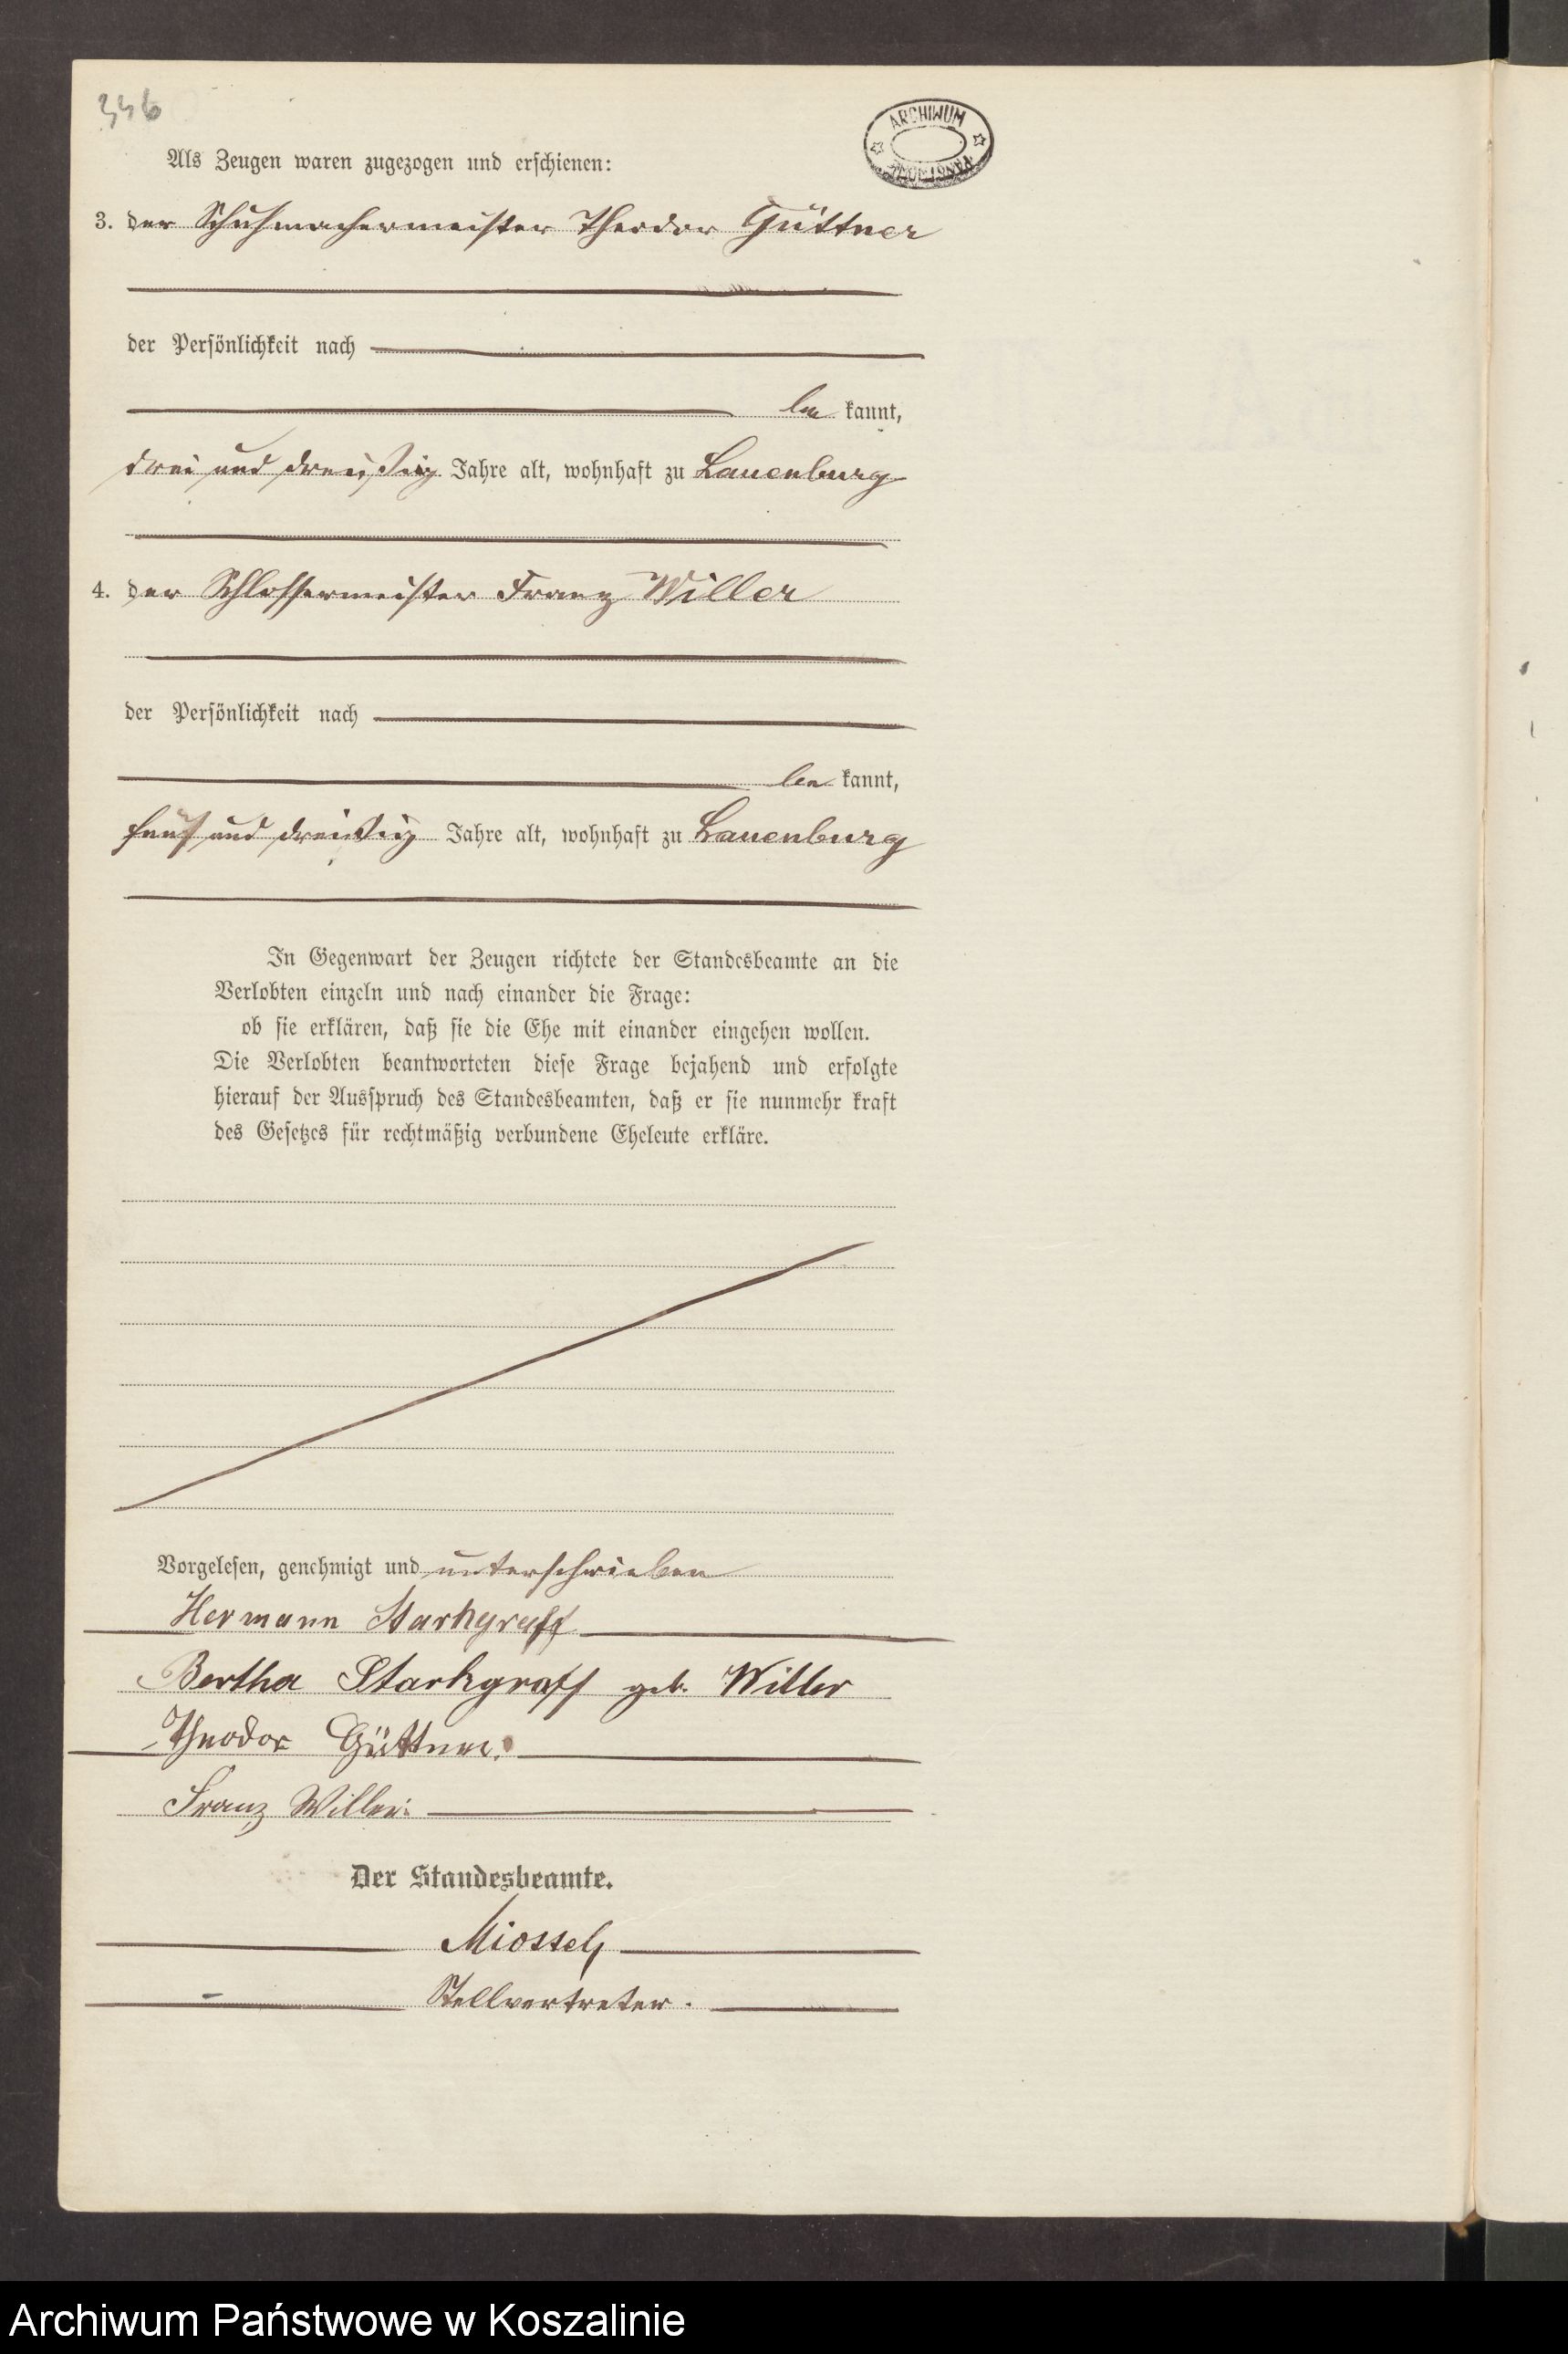 346
ARCHIWUM
Als Zeugen waren zugezogen und erschienen:
3. der Schuhmachermeister Theodor Güttner
der Persönlichkeit nach
be kannt,
drei und dreißig Jahre alt, wohnhaft zu Lauenburg
4. der Schlossermeister Franz Willer
der Persönlichkeit nach
be kannt,
fünf und dreißig Jahre alt, wohnhaft zu Lauenburg
In Gegenwart der Zeugen richtete der Standesbeamte an die
Verlobten einzeln und nach einander die Frage:
ob sie erklären, daß sie die Ehe mit einander eingehen wollen.
Die Verlobten beantworteten diese Frage bejahend und erfolgte
hierauf der Ausspruch des Standesbeamten, daß er sie nunmehr kraft
des Gesetzes für rechtmäßig verbundene Eheleute erkläre.
Vorgelesen, genehmigt und unterschrieben
Hermann Starkgraff
Bertha Starkgraff geb. Willer
Theodor Güttner.
Franz Willer.
Der Standesbeamte.
Stellvertreter.
Archiwum Państwowe w Koszalinie